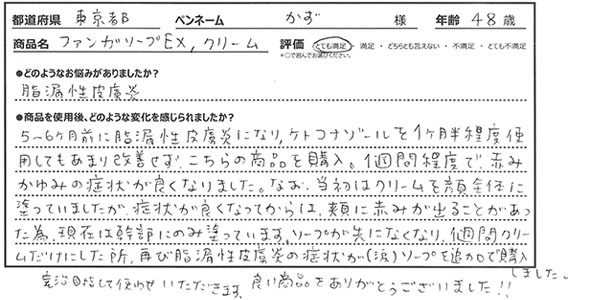 都道府県 東京都 ペンネーム かず 様 年齢 48 歳
商品名 ファンガソープEX, クリーム 評価 とても満足 ・ 満足 ・ どちらとも言えない ・ 不満足 ・ とても不満足
※○で囲んでお選びください。
●どのようなお悩みがありましたか?
脂漏性皮膚炎
●商品を使用後、どのような変化を感じられましたか?
5~6ヶ月前に脂漏性皮膚炎になり, ケトコナゾールを1ヶ月半程度使
用してもあまり改善せず, こちらの商品を購入。1週間程度で, 赤み
かゆみの症状が良くなりました。なお, 当初はクリームを顔全体に
塗っていましたが, 症状が良くなってからは, 頬に赤みが出ることがあっ
た為, 現在は幹部にのみ塗っています。ソープが先になくなり, 1週間クリー
ムだけにした所, 再び脂漏性皮膚炎の症状が(涙) ソープを追加で購入
しました。
完治目指して使わせていただきます。良い商品をありがとうございました!!